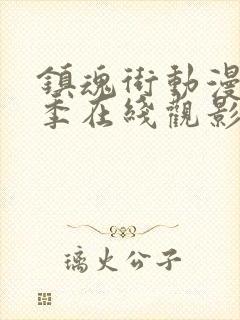 鎮魂街動漫
季在綫觀影
璃火公子